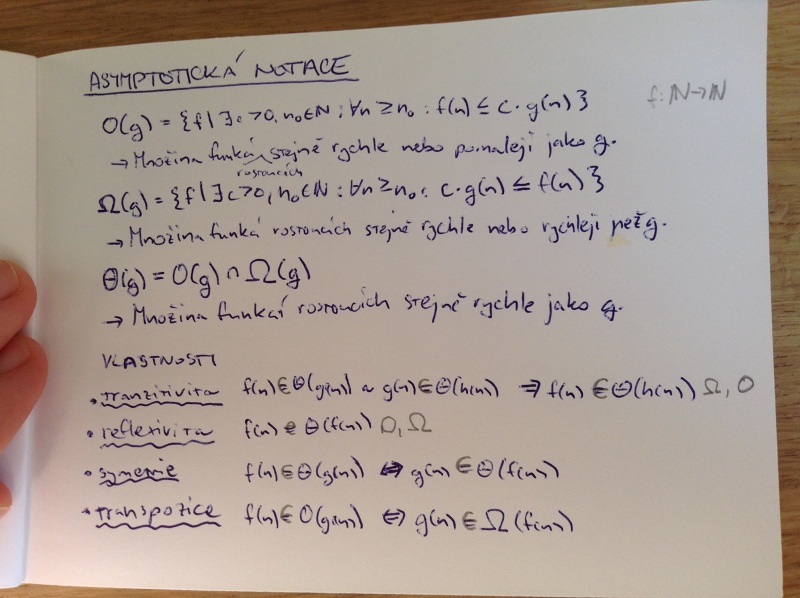 ASYMPTOTICKÁ NOTACE
f: ℕ→ℕ
O(g) = {f | ∃c >0, n₀∈ℕ : ∀n ≥ n₀ : f(n) ≤ c·g(n)}
→ Množina funkcí rostoucích stejně rychle nebo pomaleji jako g.
Ω(g) = {f | ∃c>0, n₀∈ℕ : ∀n ≥ n₀ : c·g(n) ≤ f(n)}
→ Množina funkcí rostoucích stejně rychle nebo rychleji než g.
Θ(g) = O(g) ∩ Ω(g)
→ Množina funkcí rostoucích stejně rychle jako g.
VLASTNOSTI
• tranzitivita f(n)∈Θ(g(n)) a g(n)∈Θ(h(n)) ⇒ f(n) ∈Θ(h(n)) Ω, O
• reflexivita f(n) ∈ Θ(f(n)) O, Ω
• symetrie f(n)∈Θ(g(n)) ⇔ g(n) ∈Θ(f(n))
• transpozice f(n)∈ O(g(n)) ⇔ g(n)∈ Ω(f(n))